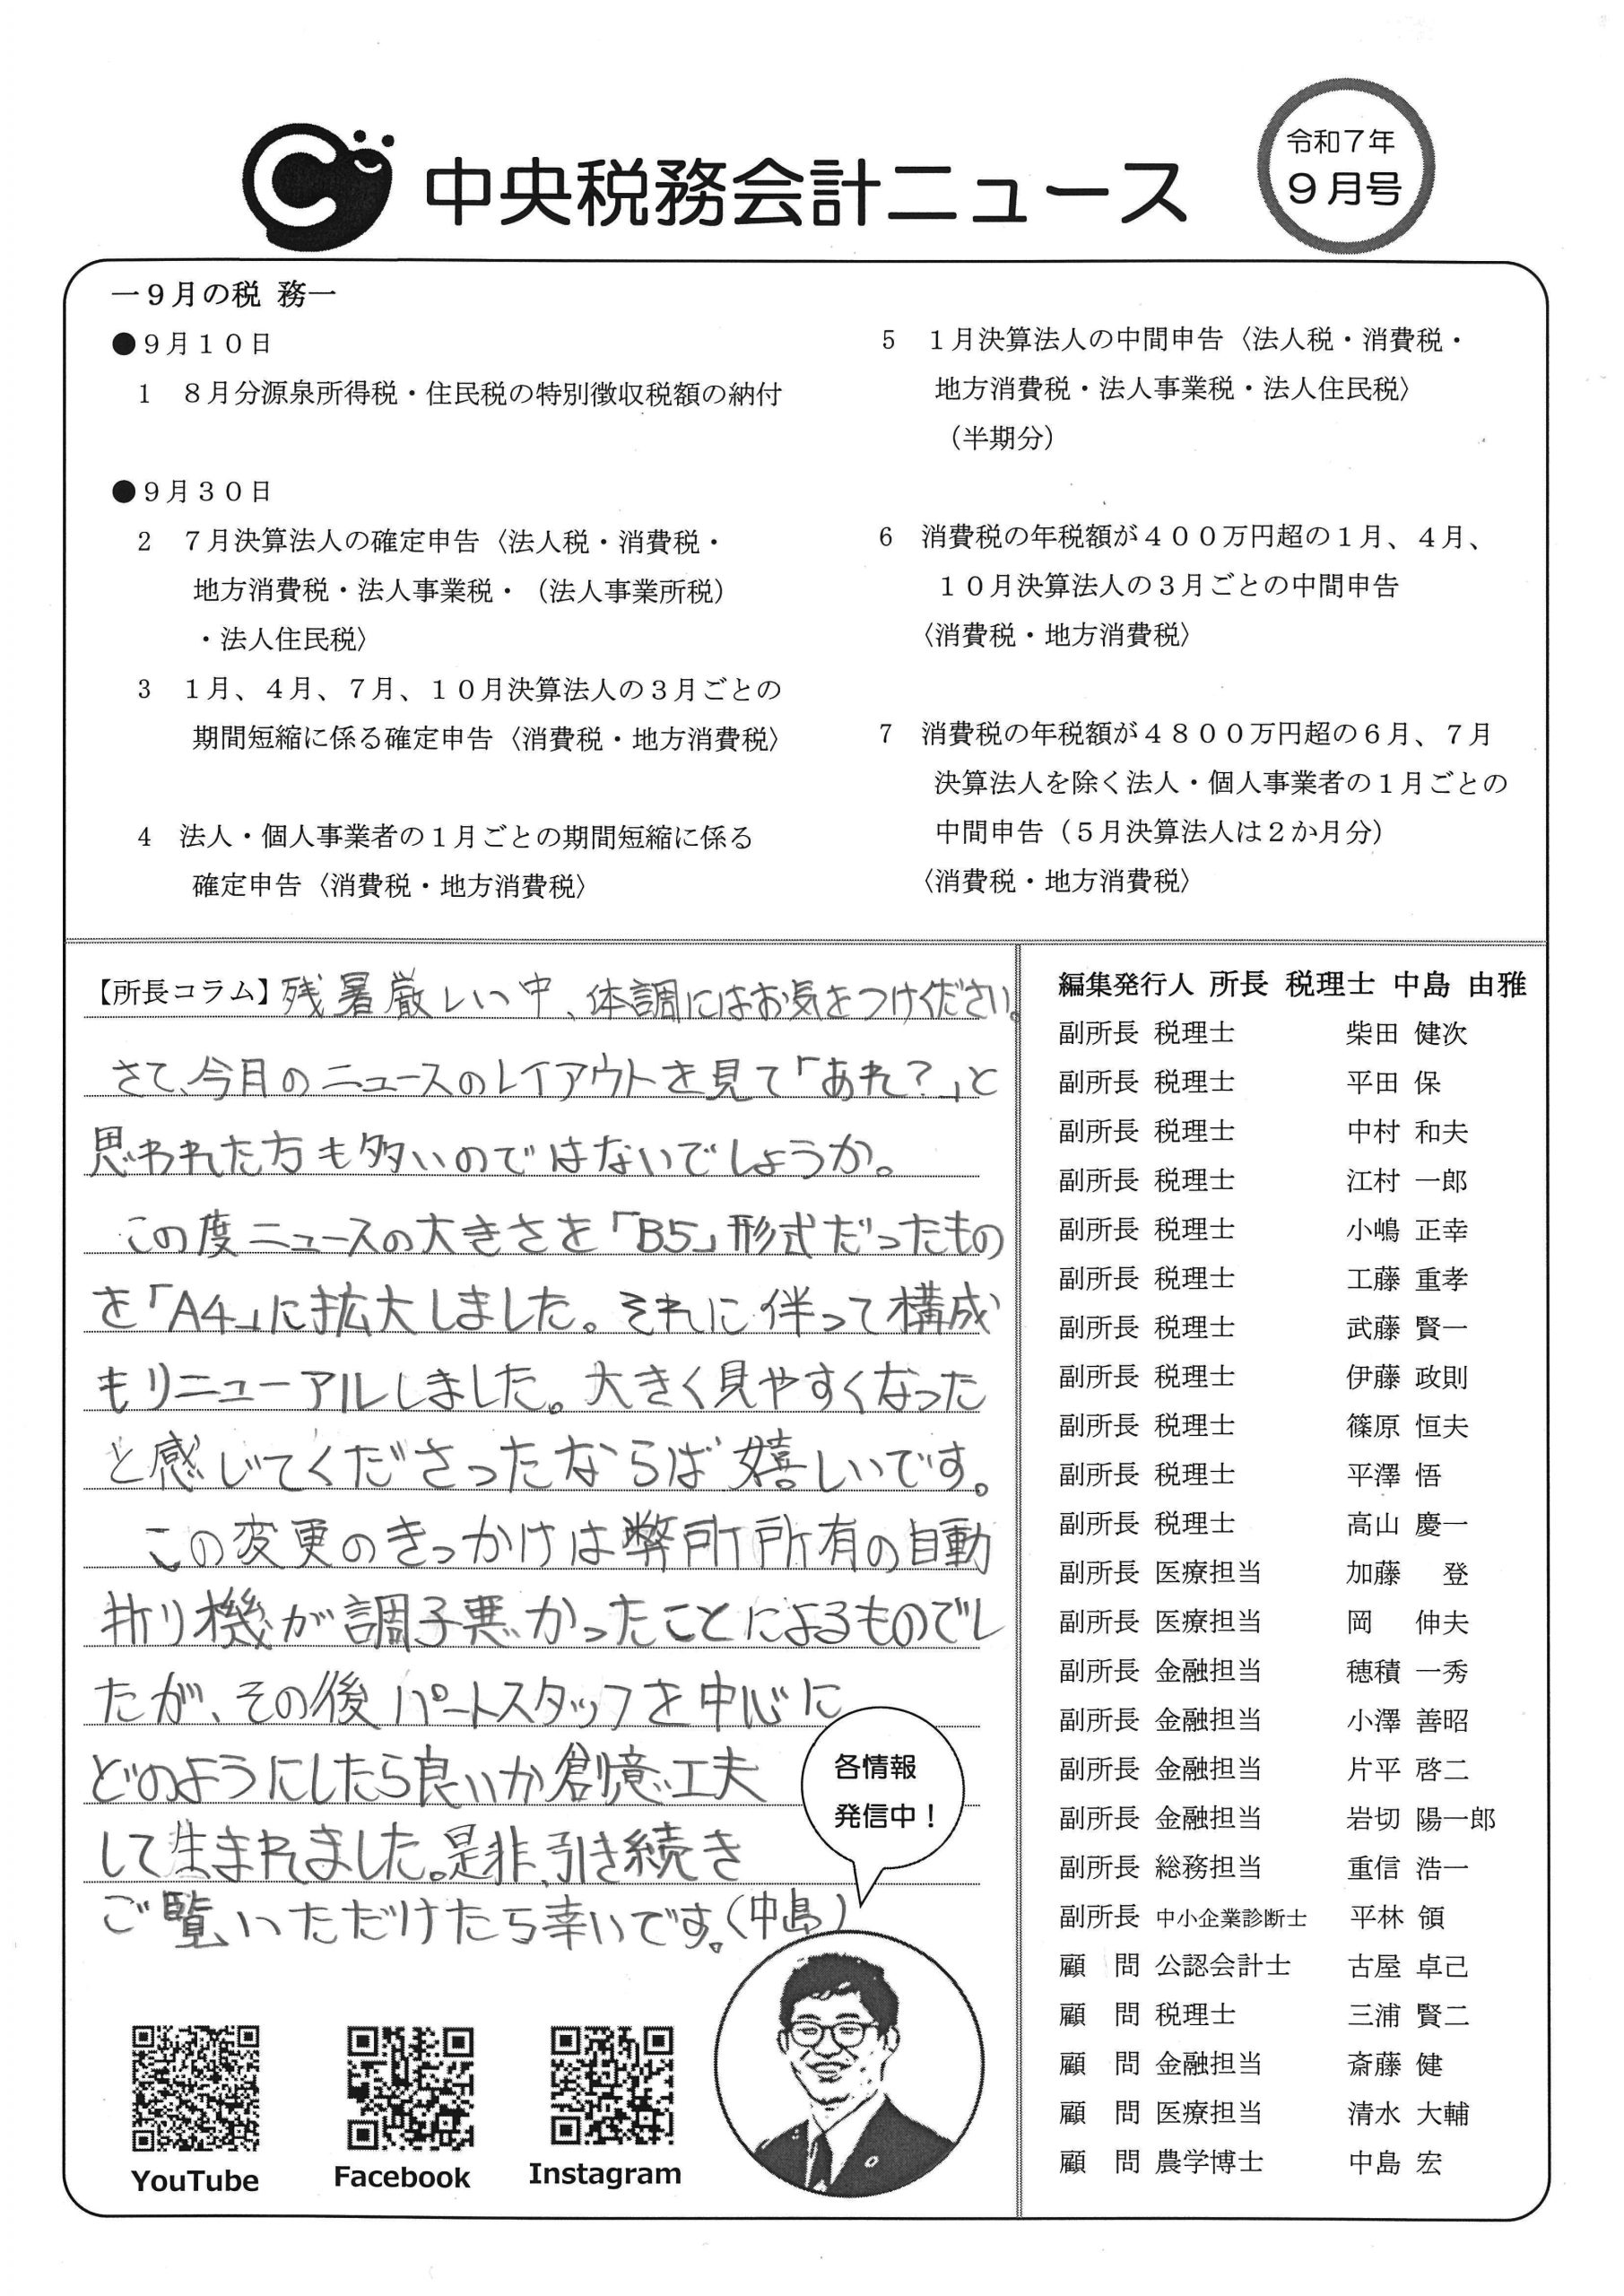 中央税務会計ニュース
令和7年
9月号
－9月の税 務－
●9月10日
1 8月分源泉所得税・住民税の特別徴収税額の納付
●9月30日
2 7月決算法人の確定申告〈法人税・消費税・
地方消費税・法人事業税・（法人事業所税）
・法人住民税〉
3 1月、4月、7月、10月決算法人の3月ごとの
期間短縮に係る確定申告〈消費税・地方消費税〉
4 法人・個人事業者の1月ごとの期間短縮に係る
確定申告〈消費税・地方消費税〉
5 1月決算法人の中間申告〈法人税・消費税・
地方消費税・法人事業税・法人住民税〉
（半期分）
6 消費税の年税額が400万円超の1月、4月、
10月決算法人の3月ごとの中間申告
〈消費税・地方消費税〉
7 消費税の年税額が4800万円超の6月、7月
決算法人を除く法人・個人事業者の1月ごとの
中間申告（5月決算法人は2か月分）
〈消費税・地方消費税〉
【所長コラム】残暑厳しい中、体調にはお気をつけください。
さて、今月のニュースのレイアウトを見て「あれ？」と
思われた方も多いのではないでしょうか。
この度ニュースの大きさを「B5」形式だったもの
を「A4」に拡大しました。それに伴って構成
もリニューアルしました。大きく見やすくなった
と感じてくださったならば嬉しいです。
この変更のきっかけは弊所所有の自動
折り機が調子悪かったことによるものでし
たが、その後パートスタッフを中心に
どのようにしたら良いか創意工夫
して生まれました。是非、引き続き
ご覧いただけたら幸いです。（中島）
各情報
発信中！
YouTube
Facebook
Instagram
編集発行人 所長 税理士 中島 由雅
副所長 税理士 柴田 健次
副所長 税理士 平田 保
副所長 税理士 中村 和夫
副所長 税理士 江村 一郎
副所長 税理士 小嶋 正幸
副所長 税理士 工藤 重孝
副所長 税理士 武藤 賢一
副所長 税理士 伊藤 政則
副所長 税理士 篠原 恒夫
副所長 税理士 平澤 悟
副所長 税理士 高山 慶一
副所長 医療担当 加藤 登
副所長 医療担当 岡 伸夫
副所長 金融担当 穂積 一秀
副所長 金融担当 小澤 善昭
副所長 金融担当 片平 啓二
副所長 金融担当 岩切 陽一郎
副所長 総務担当 重信 浩一
副所長 中小企業診断士 平林 領
顧 問 公認会計士 古屋 卓己
顧 問 税理士 三浦 賢二
顧 問 金融担当 斎藤 健
顧 問 医療担当 清水 大輔
顧 問 農学博士 中島 宏